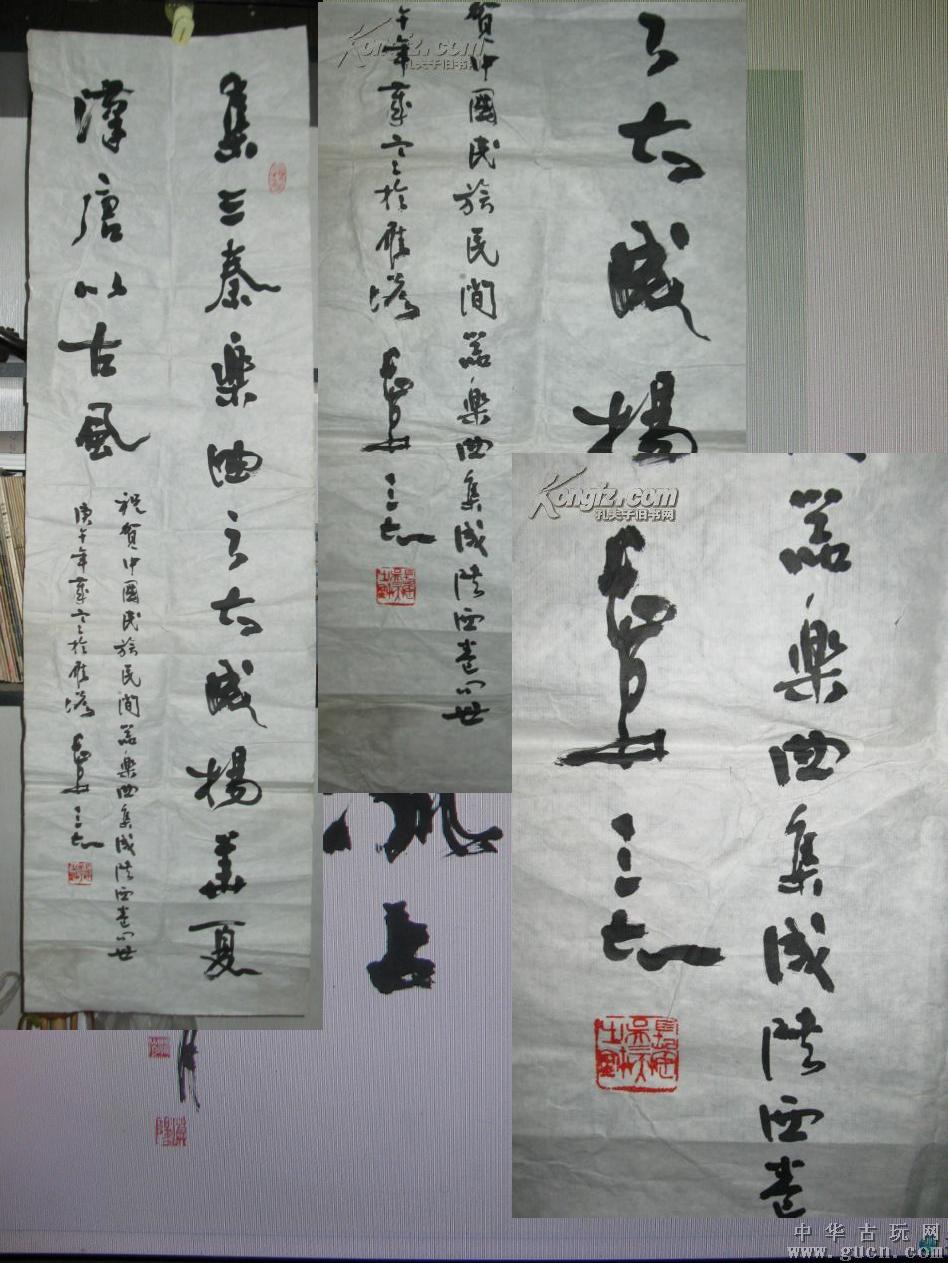 集三秦樂曲之大成揚華夏
漢唐以古風
祝賀中國民族民間器樂曲集成陕西卷问世
庚午年 於雁塔 長安 三大
之大成揚
賀中國民族民間器樂曲集成陕西卷问世
午年 於雁塔 長安 三大
器樂曲集成陕西卷
長安 三大
Kongfz.com
孔夫子旧书网
Kongfz.com
孔夫子旧书网
中华古玩网
www.gucn.com